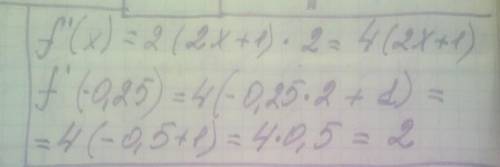 f'(x) = 2(2x+1)·2 = 4(2x+1)
f'(-0,25) = 4(-0,25·2 + 1) =
= 4(-0,5+1) = 4·0,5 = 2